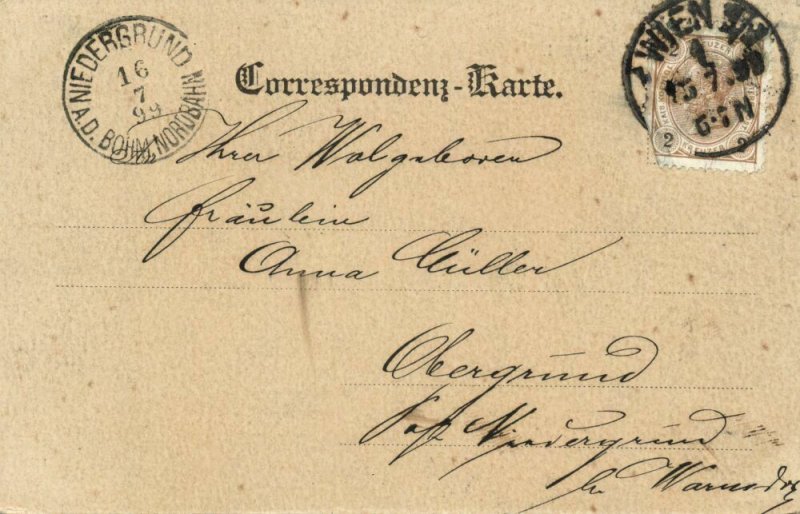 NIEDERGRUND
A.D. BÖHM. NORDBAHN
16
7
99
Correspondenz-Karte.
WIEN
1
15.7.99
6-7N
2
2
Ihrer Wolgeboren
Fräulein
Anna Müller
Obergrund
Post Niedergrund
bei Warnsdorf